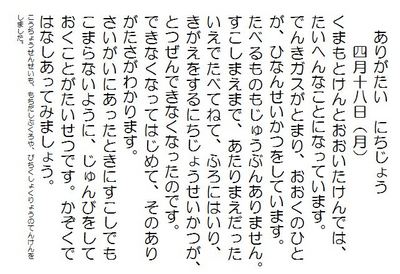 ありがたい　にちじょう
四月十八日（月）
くまもとけんとおおいたけんでは、
たいへんなことになっています。
でんきガスがとまり、おおくのひと
が、ひなんせいかつをしています。
たべるものもじゅうぶんありません。
すこしまえまで、あたりまえだった
いえでたべてねて、ふろにはいり、
きがえをするにちじょうせいかつが、
とつぜんできなくなったのです。
できなくなってはじめて、そのあり
がたさがわかります。
さいがいにあったときにすこしでも
こまらないように、じゅんびをして
おくことがたいせつです。かぞくで
はなしあってみましょう。
こうちょうせんせいも、もちだしぶくろや、びちくしょくりょうのてんけんを
しました。